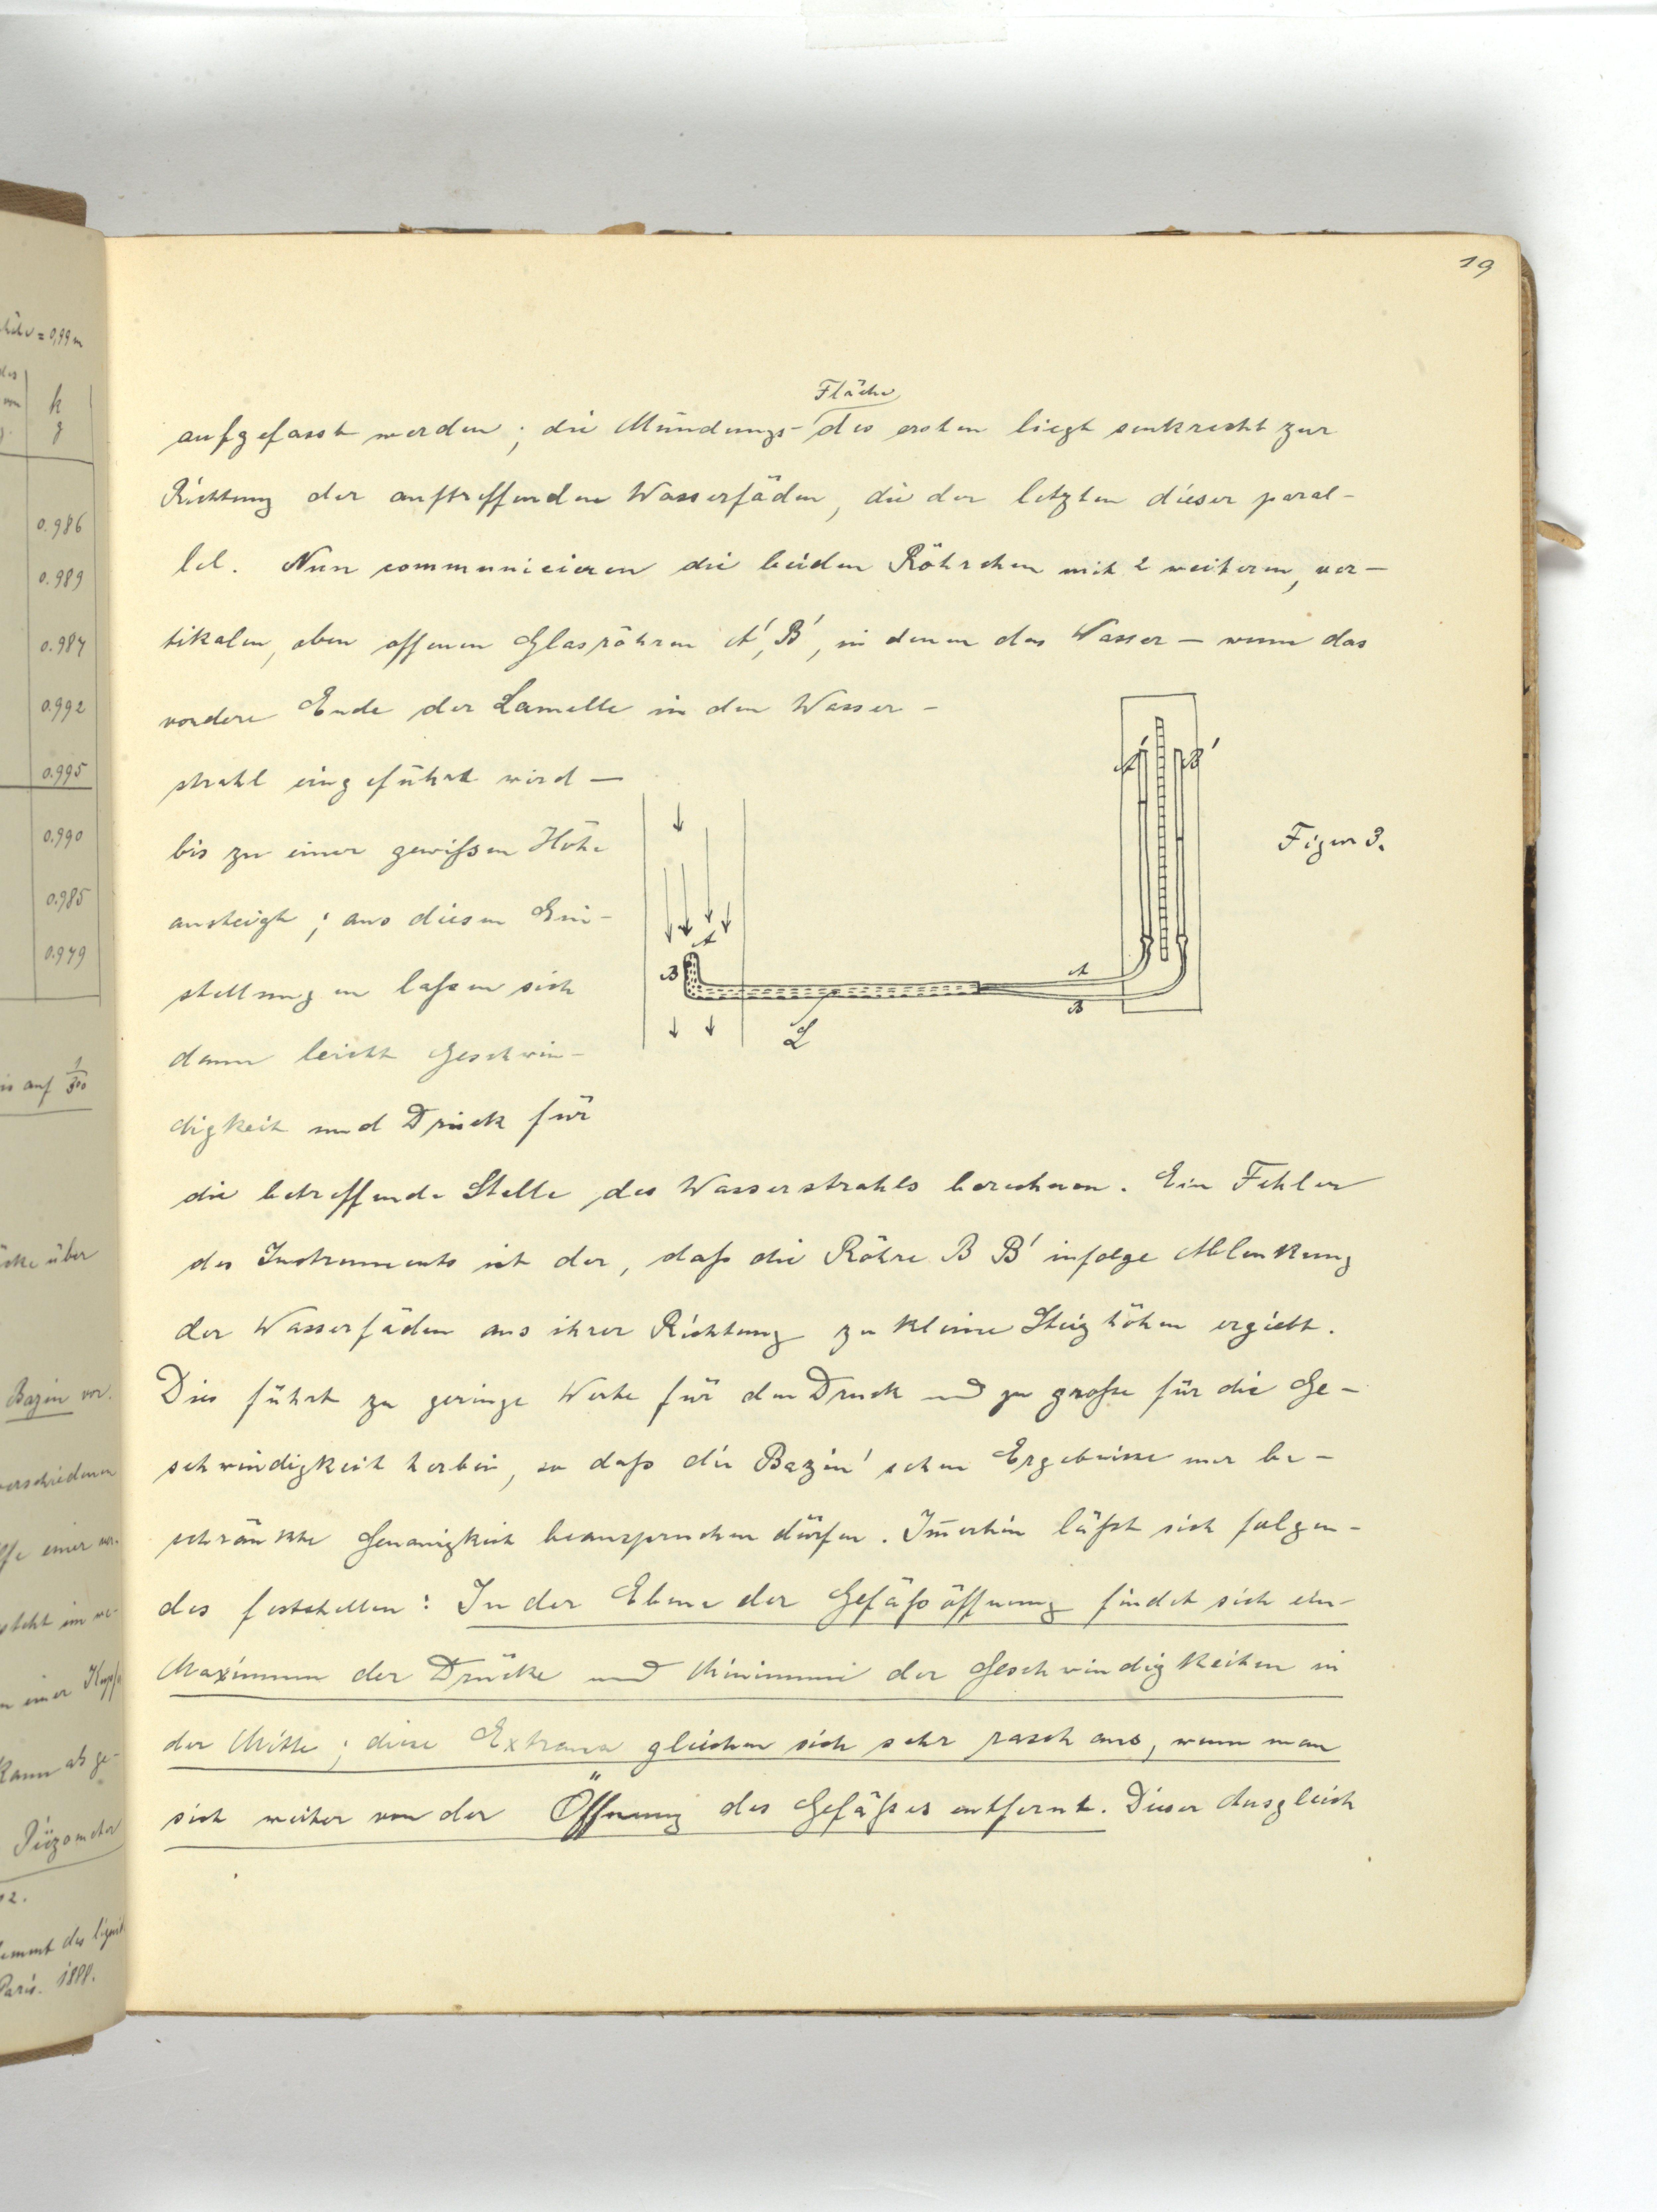 19
Fläche
aufgefasst werden; die Mündungs- des ersten liegt senkrecht zur
Richtung der auftreffenden Wasserfäden, die der letzten dieser paral-
lel. Nun communicieren die beiden Röhrchen mit 2 weiteren, ver-
tikalen, oben offenen Glasröhren A', B', in denen das Wasser – wenn das
vordere Ende der Lamelle in den Wasser-
strahl eingeführt wird –
bis zu einer gewißen Höhe
ansteigt; aus diesen Ein-
stellungen laßen sich
dann leicht Geschwin-
digkeit und Druck für
A' B'
Figur 3.
A
B
A
B
L
die betreffende Stelle des Wasserstrahls berechnen. Ein Fehler
des Instruments ist der, daß die Röhre B B' infolge Ablenkung
der Wasserfäden aus ihrer Richtung zu kleine Steighöhen ergiebt.
Dies führt zu geringe Werte für den Druck und zu große für die Ge-
schwindigkeit herbei, so daß die Bazin'schen Ergebnisse nur be-
schränkte Genauigkeit beanspruchen dürfen. Im̄erhin läßt sich folgen-
des feststellen: In der Ebene der Gefäßöffnung findet sich ein
Maximum der Drücke und Minimum der Geschwindigkeiten in
der Mitte; diese Extrema gleichen sich sehr rasch aus, wenn man
sich weiter von der Öffnung des Gefäßes entfernt. Dieser Ausgleich
= 0,99 m
k
g
0.986
0.989
0.987
0.992
0.995
0.990
0.985
0.979
auf 1/300
über
Bazin vor.
verschiedenen
einer
steht im
einer
kann ab ge-
Piëzometer
12.
des
Paris. 1888.